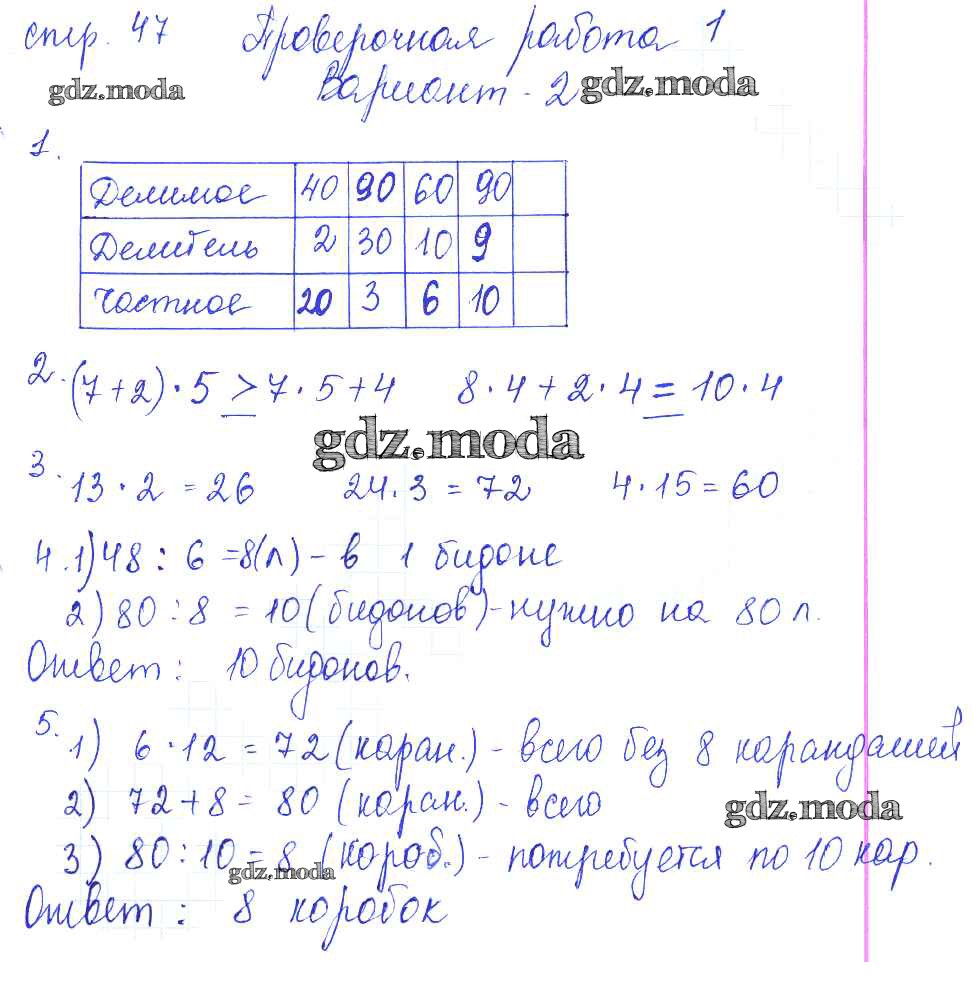 стр. 47 Проверочная работа 1
gdz.moda Вариант - 2 gdz.moda
1.
Делимое 40 90 60 90
Делитель 2 30 10 9
Частное 20 3 6 10
2. (7+2)·5 > 7·5+4 8·4+2·4 = 10·4
gdz.moda
3. 13·2 = 26 24.3 = 72 4·15 = 60
4. 1) 48 : 6 = 8(л) - в 1 бидоне
2) 80 : 8 = 10 (бидонов) - нужно на 80 л.
Ответ: 10 бидонов.
5. 1) 6·12 = 72 (каран.) - всего без 8 карандашей
2) 72+8 = 80 (каран.) - всего
gdz.moda
3) 80:10 = 8 (короб.) - потребуется по 10 кар.
gdz.moda
Ответ: 8 коробок